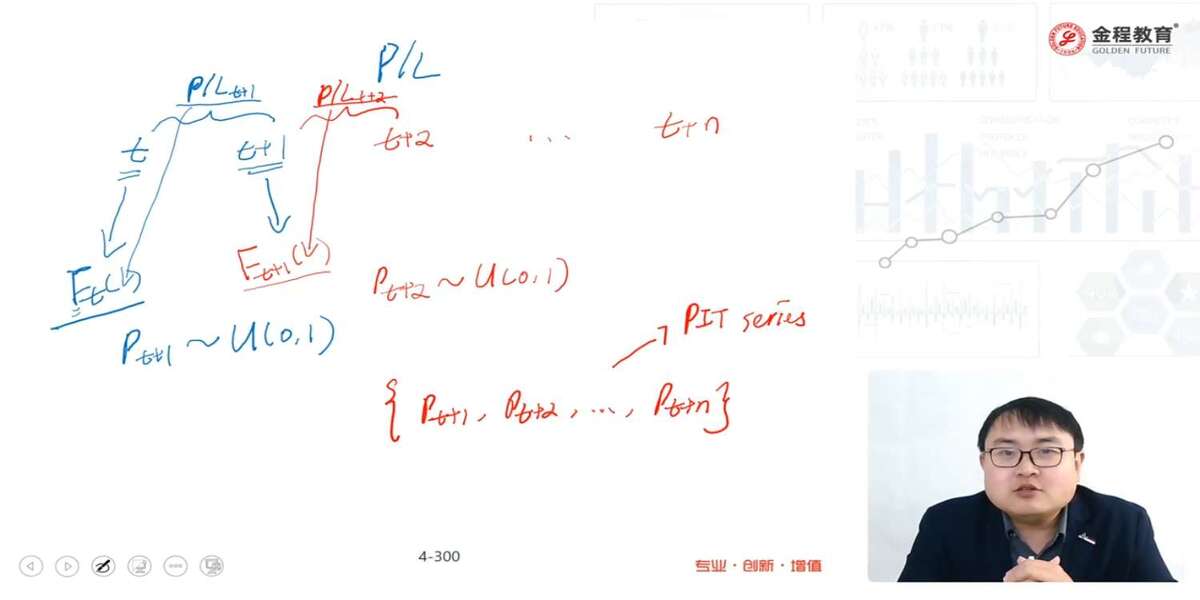 金程教育
GOLDEN FUTURE
P/L
P/L t+1
P/L t+2
t
t+1
t+2
...
t+n
Ft(·)
Ft+1(·)
Pt+1 ~ U(0,1)
Pt+2 ~ U(0,1)
PIT series
{ Pt+1, Pt+2, ..., Pt+n }
4-300
专业·创新·增值